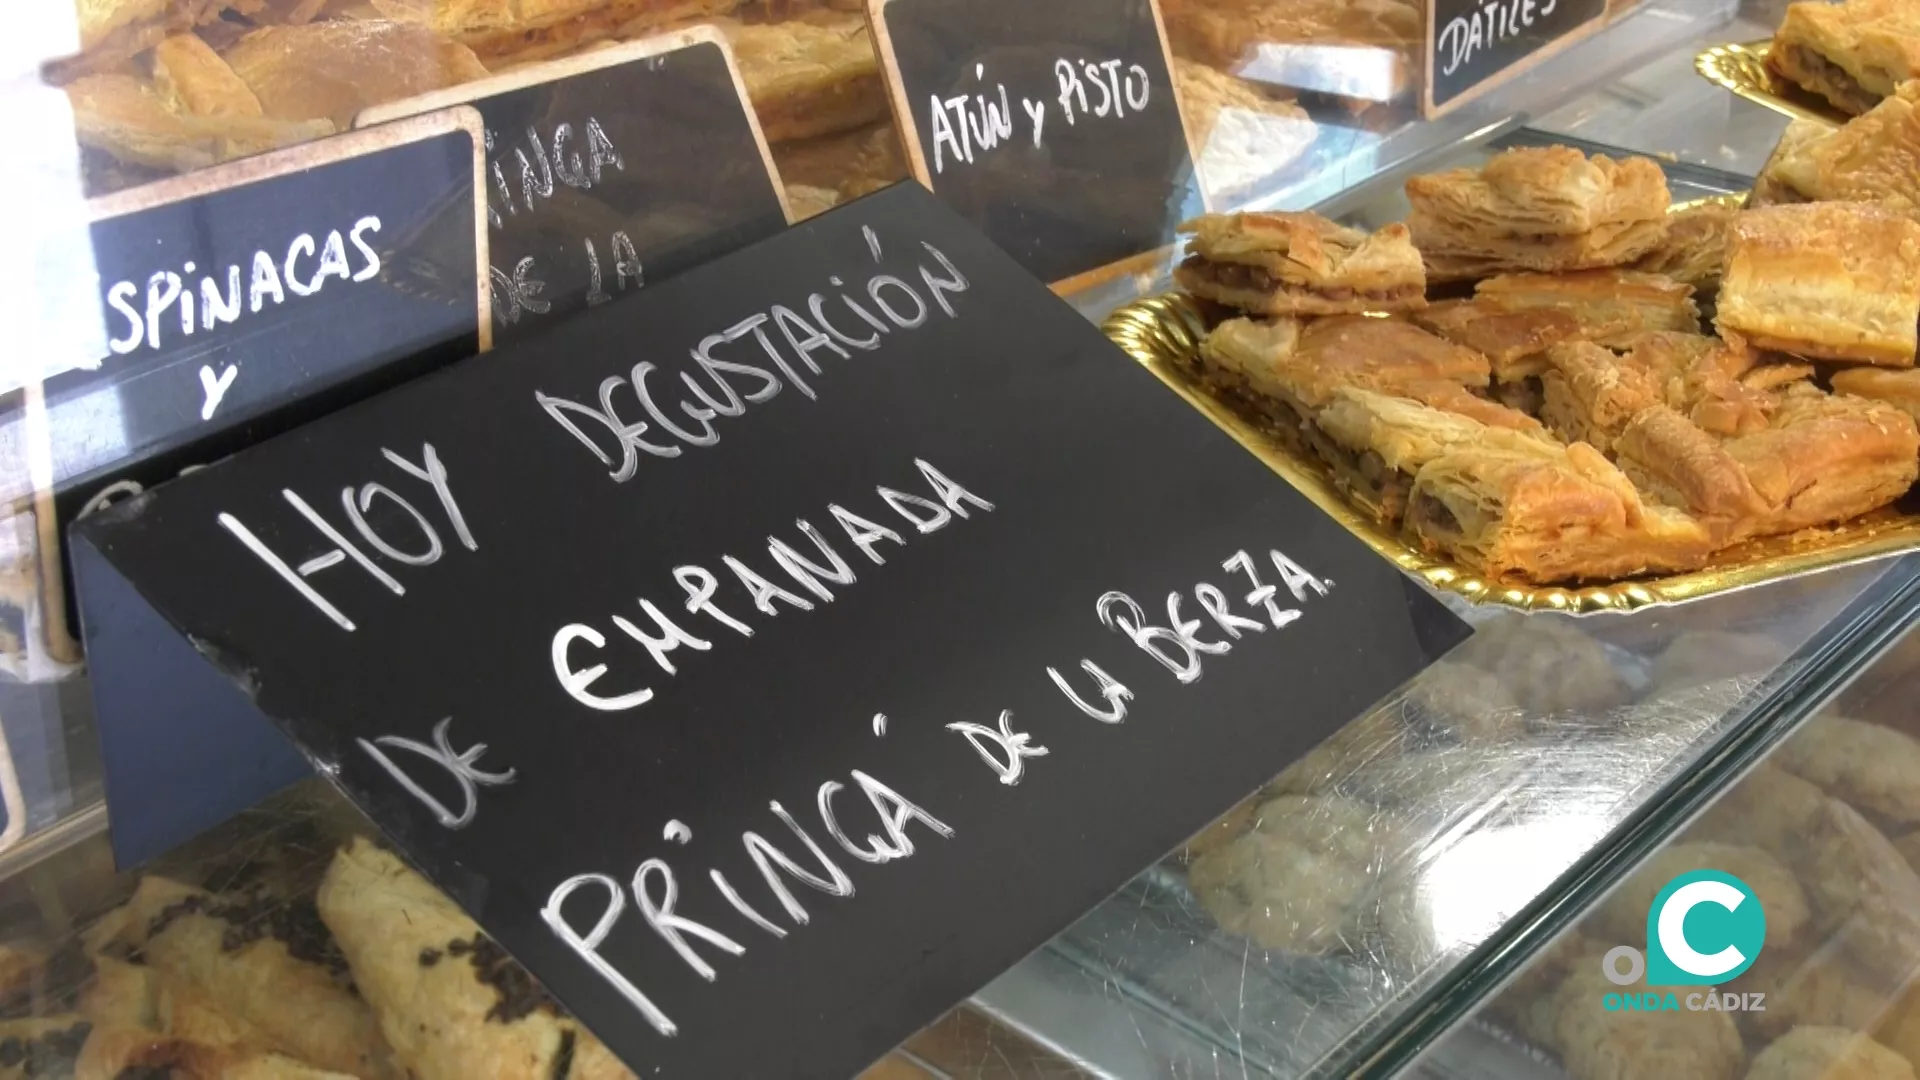 DÁTILES
ATÚN y PISTO
DE LA
SPINACAS
Y
HOY DEGUSTACIÓN
DE EMPANADA
PRINGÁ DE LA BERZA.
C
ONDA CÁDIZ